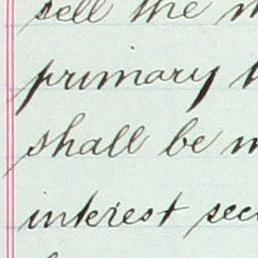 sell the
primary
shall be
interest